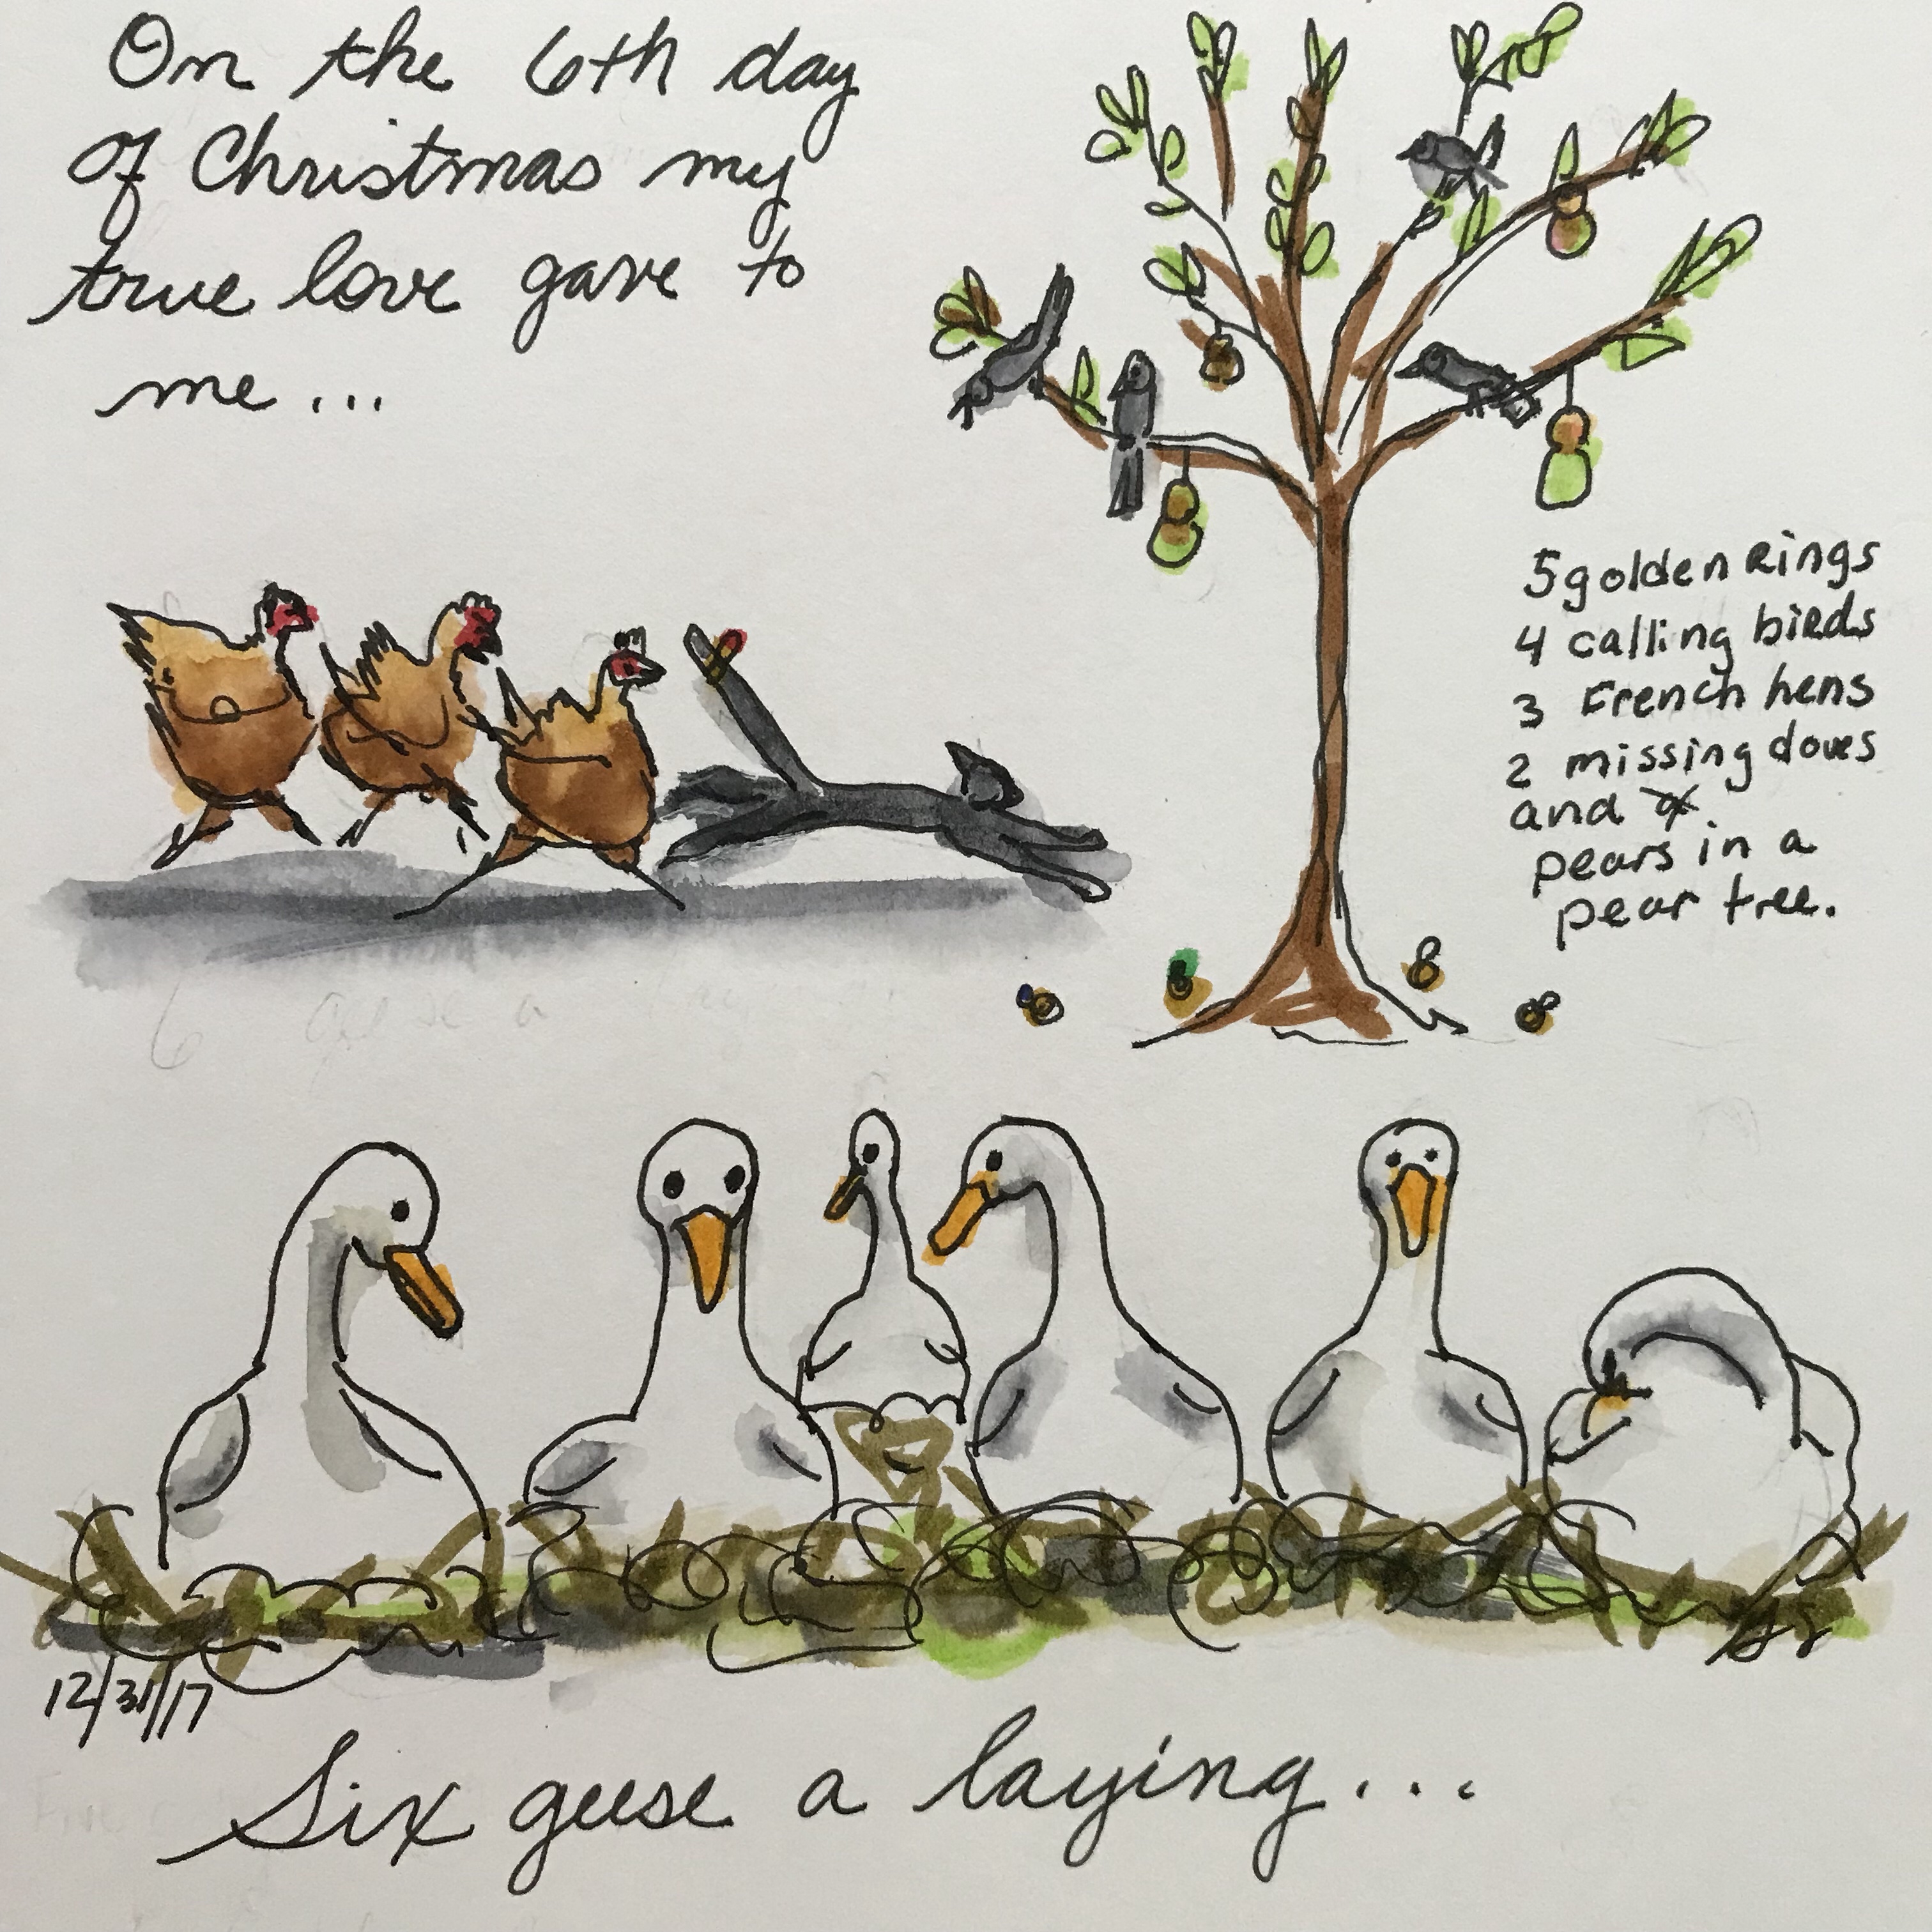 On the 6th day
of Christmas my
true love gave to
me...
5 golden Rings
4 calling birds
3 French hens
2 missing doves
and
pears in a
pear tree.
6 geese a laying
12/31/17
Six geese a laying...